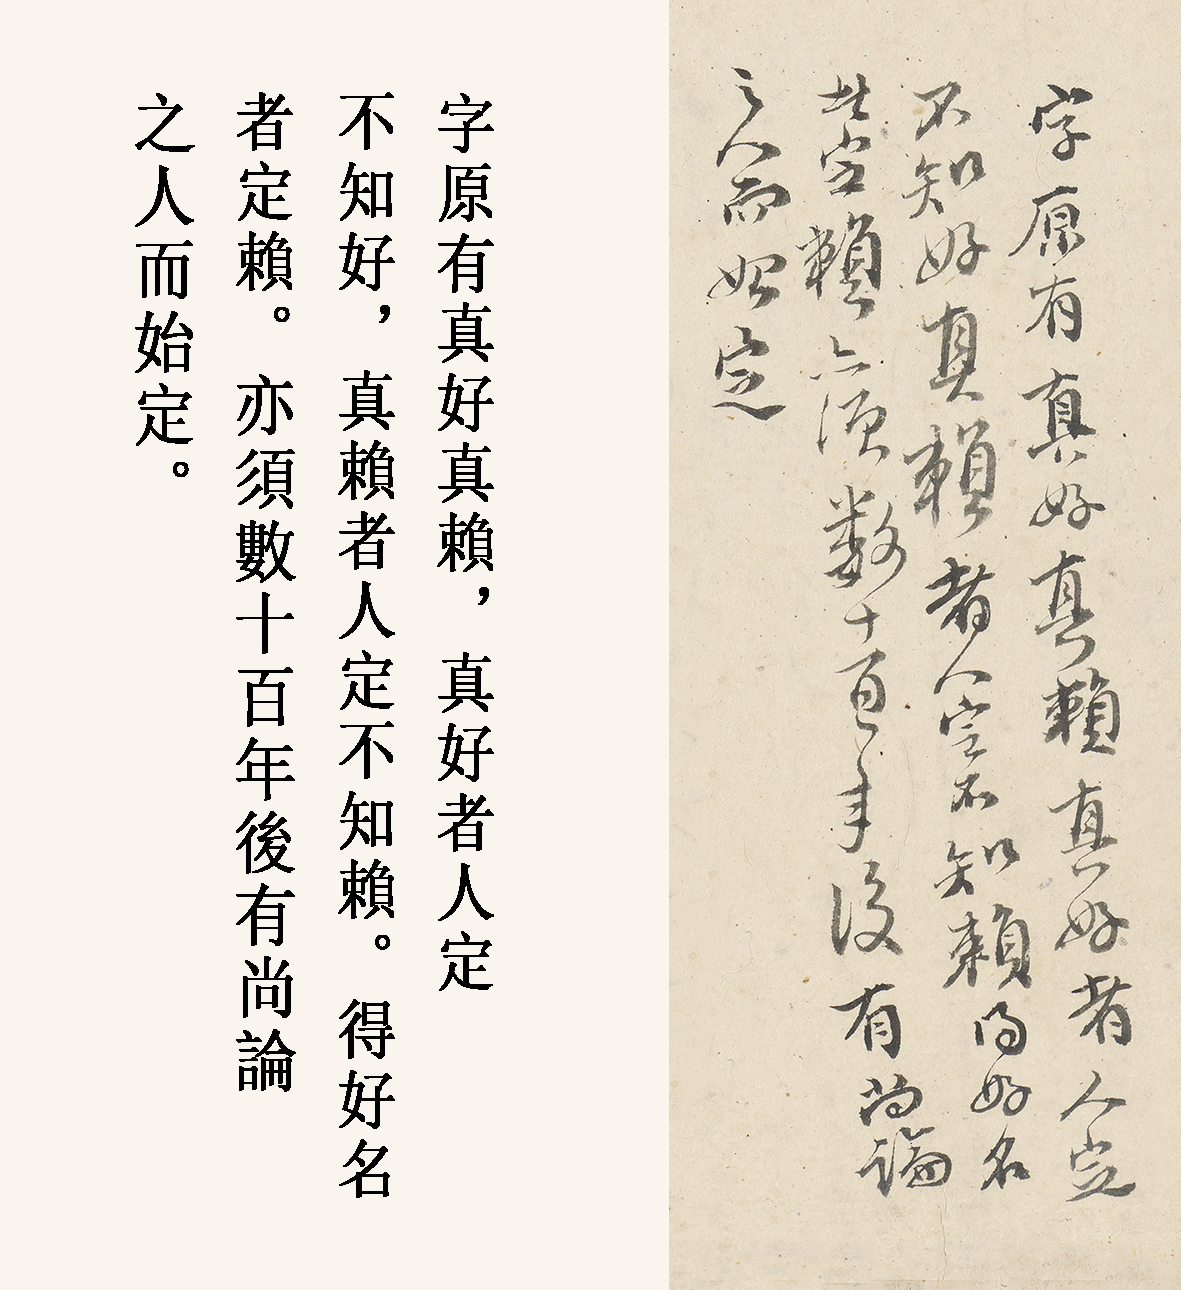 字原有真好真賴真好者人定
不知好真賴者人定不知賴得好名
者定賴亦須数十百年後有尚論
之人而始定
字原有真好真賴，真好者人定
不知好，真賴者人定不知賴。得好名
者定賴。亦須數十百年後有尚論
之人而始定。